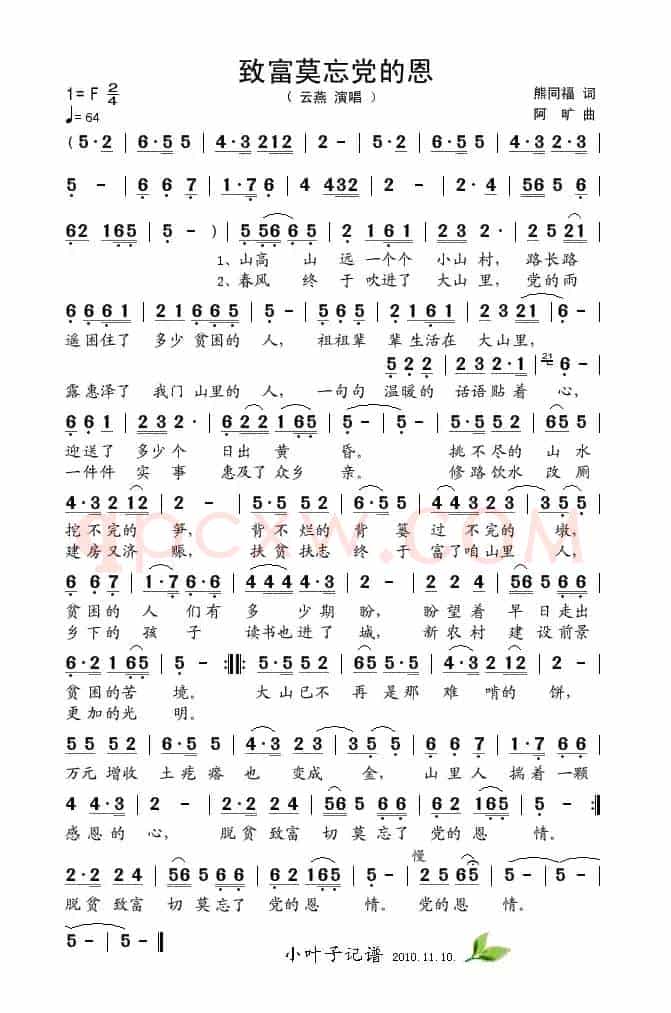 致富莫忘党的恩
1= F 2/4
（ 云燕 演唱 ）
熊同福 词
♩= 64
阿 旷 曲
( 5·2 | 6·5 5 | 4·3 212 | 2 - | 5·2 | 6·5 5 | 4·3 2·3 |
5 - | 6 6 7 | 1·7 6 | 4 432 | 2 - | 2·4 | 56 5 6 |
62 165 | 5 - ) | 5 56 6 5 | 2 1 6 1 | 2·3 | 2 5 21 |
1、山高 山 远 一个个 小山 村， 路长路
2、春风 终 于 吹进了 大山 里， 党的雨
6 6 6 1 | 2 1 6 6 5 | 5 - | 6 5 2 | 2 1 6 1 | 2 3 21 | 6 - |
遥困住了 多少 贫困的 人， 祖祖辈 辈生活在 大山里，
5 2 2 | 2 3 2·1 | 21 6 - |
露惠泽了 我门 山里的 人， 一句句 温暖的 话语贴着 心，
6 6 1 | 2 3 2 | 6 2 2 1 6 5 | 5 - | 5 - | 5·5 5 | 2 5 5 |
迎送了 多少个 日出 黄 昏。 挑不尽的 山水
一件件 实事 惠及了众乡 亲。 修路饮水 改厕
4·3 2 12 | 2 - | 5·5 5 | 6·5 5 | 4 4 3 2 3 | 3 5 5 |
挖不完的 笋， 背不烂的 背 篓 过 不完的 墩，
建房又济 赈， 扶贫扶志 终 于 富了咱山里 人，
6 6 7 | 1·7 6·6 | 4 4 4 4 3 | 2 - | 2 2 4 | 56 5 6 6 |
贫困的 人 们有 多 少期 盼， 盼望着 早日走出
乡下的 孩 子 读书也进了 城， 新农村 建设前景
6·2 1 65 | 5 - :||: 5·5 5 | 2 5 5 | 4·3 2 12 | 2 - |
贫困的苦 境。 大山已不 再是那 难 啃的 饼，
更加的光 明。
5 5 5 5 | 6·5 5 | 4·3 | 2 3 | 3 5 5 | 6 6 7 | 1·7 6 6 |
万元增收 土疙 瘩 也 变成 金， 山里人 揣着一颗
4 4·3 | 2 - | 2·2 2 4 | 56 5 6 6 | 6 2 165 | 5 - :||
感恩的 心， 脱贫致富 切 莫忘了 党的恩 情。
慢
2·2 2 4 | 56 5 6 6 | 6 2 165 | 5 - | 2 56 5 | 5 - | 5 - |
脱贫 致富 切 莫忘了 党的恩 情。 党的恩 情。
5 - | 5 - ||
小叶子记谱 2010.11.10.
qpcxw.com